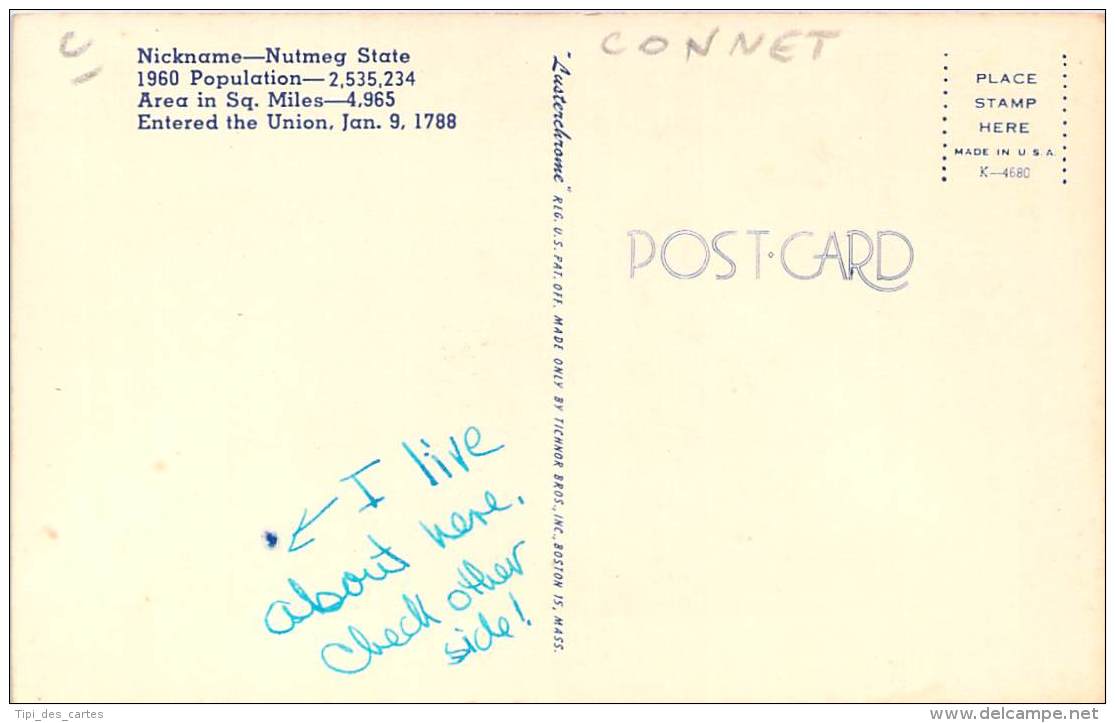 C
CONNET
Nickname—Nutmeg State
1960 Population—2,535,234
Area in Sq. Miles—4,965
Entered the Union, Jan. 9, 1788
"Lusterchrome" REG. U.S. PAT. OFF. MADE ONLY BY TICHNOR BROS., INC., BOSTON 15, MASS.
PLACE
STAMP
HERE
MADE IN U.S.A.
K—4680
POST·CARD
I live
about here.
Check other
side!
Tipi_des_cartes
www.delcampe.net